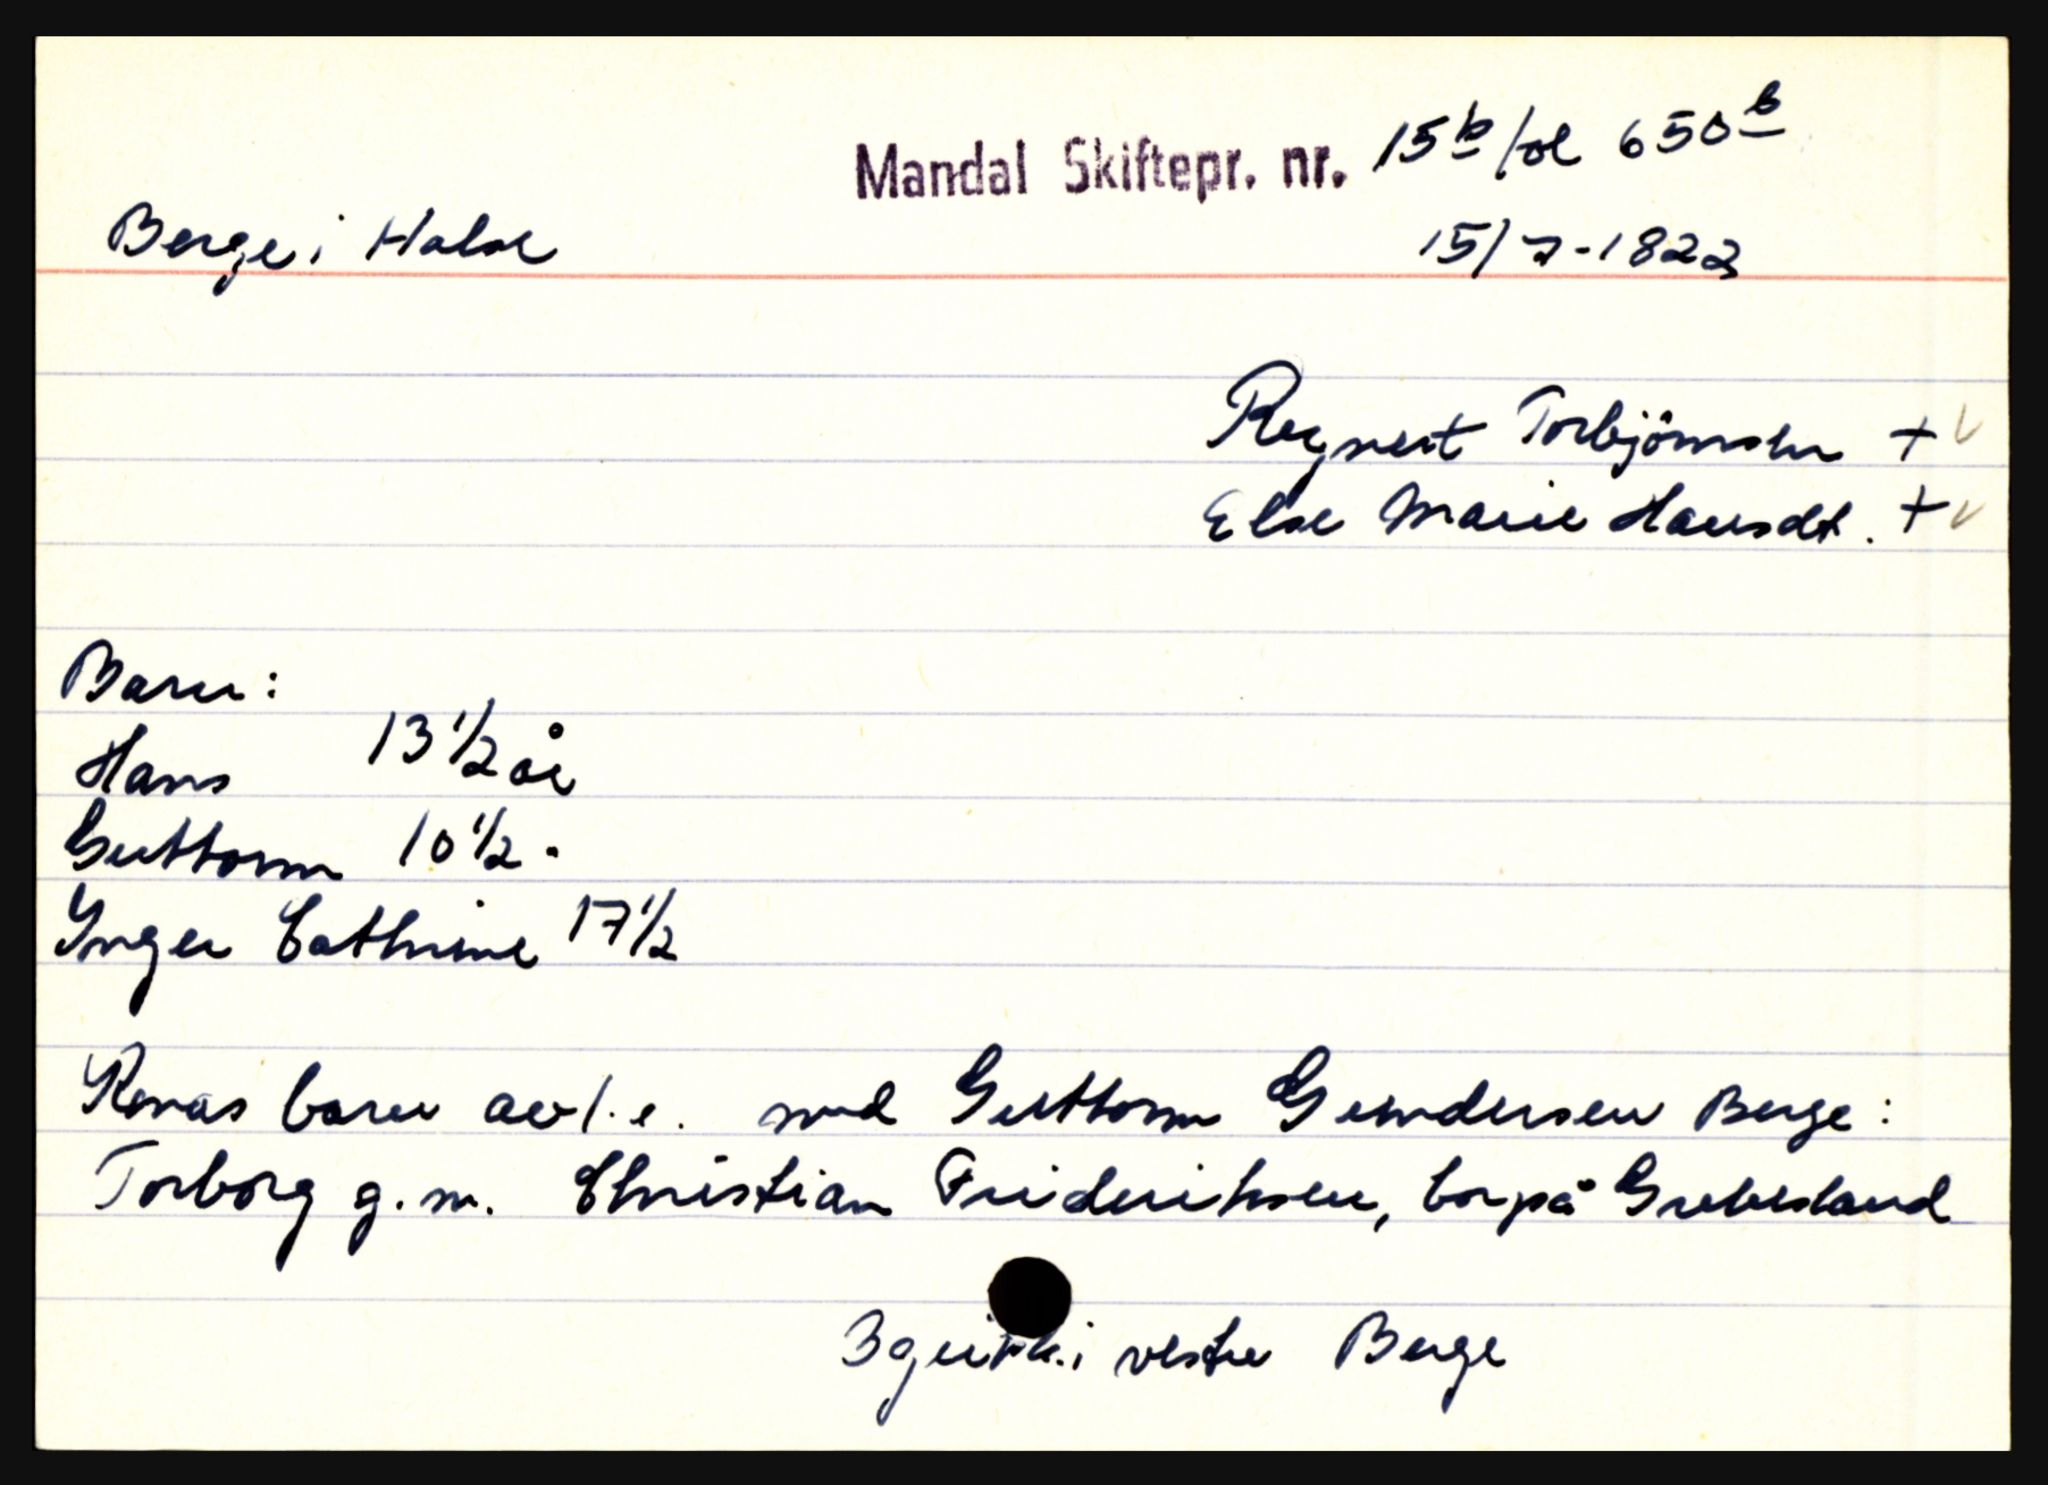 Mandal Skiftepr. nr. 15b fol 650b
Berge i Halse 15/7-1822
Regnert Torbjörnsen +
Else Marie Hansdt. +
Barn:
Hans 13 1/2 år
Guttorm 10 1/2 "
Inger Cathrine 17 1/2
Konas barn av 1. e. med Guttorm Gundersen Berge:
Torborg g. m. Christian Frideriksen, bor på Grebesland
3 huder i vestre Berge